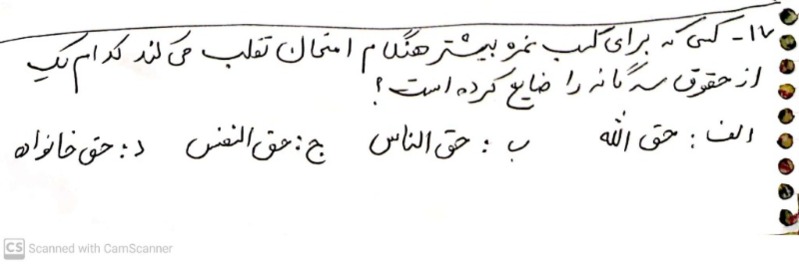 ۱۷- کسی که برای کسب نمره بیشتر هنگام امتحان تقلب می کند کدام یک
از حقوق سه گانه را ضایع کرده است؟
الف: حق الله ب: حق الناس ج: حق النفس د: حق خانواده
CS Scanned with CamScanner